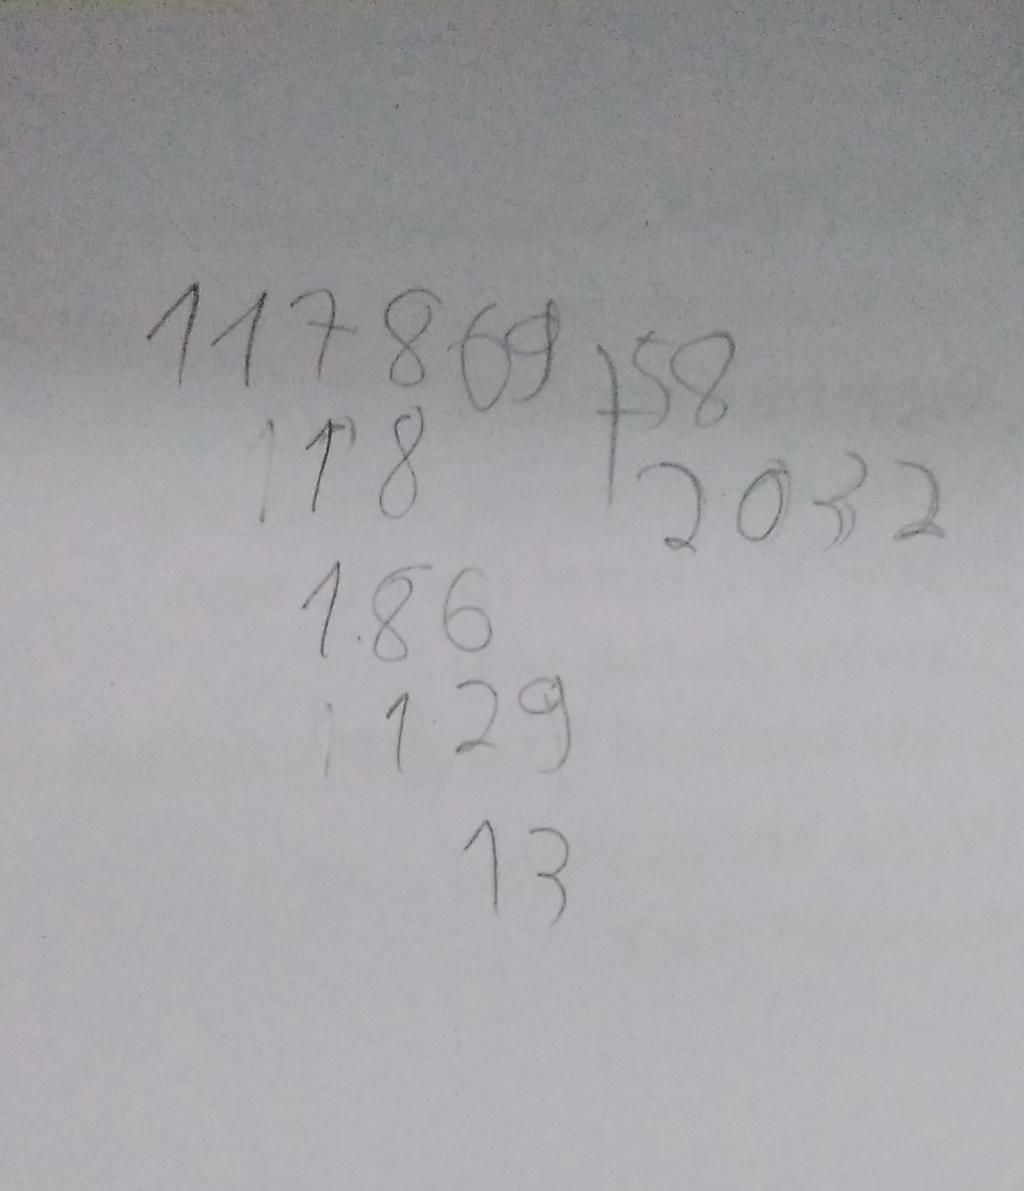 117869 58
18 2032
186
129
13